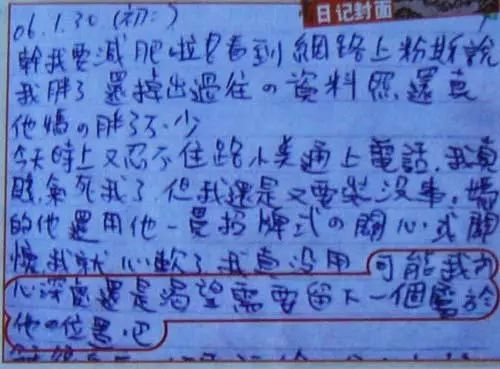 日记封面
06.1.30(初二)
幹我要減肥啦!看到網路上粉斯說
我胖了 還掉出過往の資料照 還真
他媽の胖了不少
今天晚上又忍不住跟小美通上電話,我真
氣死我了 但我還是又要裝沒事,媽
的他還用他一貫招牌式の關心 或關
懷我就心軟了我真没用 可能我內
心深處還是渴望需要留下一個屬於
他の位置吧